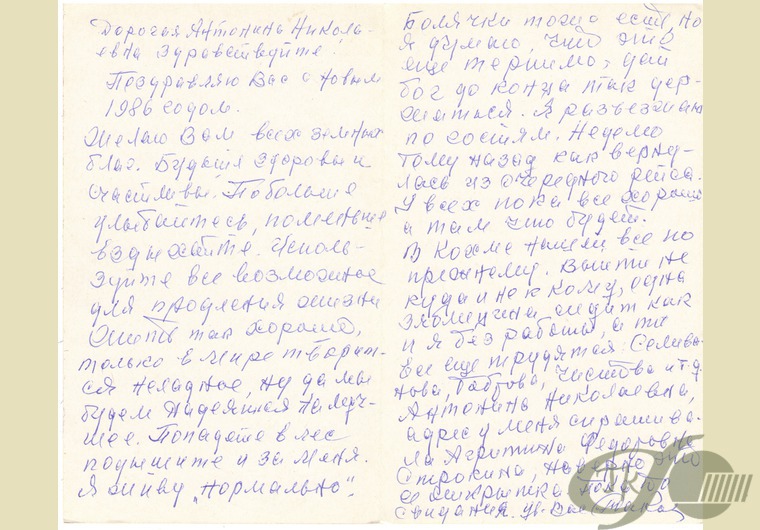 Дорогая Антонина Николь-
евна здравствуйте!
Поздравляю Вас с новым
1986 годом.
Желаю Вам всех земных
благ. Будьте здоровы и
счастливы. Побольше
улыбайтесь, поменьше
вздыхайте. Исполь-
зуйте все возможное
для продления жизни
Жить так хорошо,
только в мире творит-
ся неладное, ну да мы
будем надеяться на луч-
шее. Попадете в лес
подышите и за меня.
Я живу „нормально".
Болячки тоже есть, но
я думаю, что это
еще терпимо, дай
бог до конца так дер-
жаться. Я разъезжаю
по гостям. Неделю
тому назад как верну-
лась из очередного рейса.
У всех пока все хорошо
а там что будет.
В Кохме нашей все по
прежнему. Выйти не
куда и не к кому, одна
сидит как
и я без работы, а те
все еще трудятся: Селива-
нова, Чистова и т.д.
Антонина Николаевна,
адрес у меня спрашива-
ла Агриппина Федоровна
Строкина, наверно это
ее открытка пока до
свидания.
ТПК